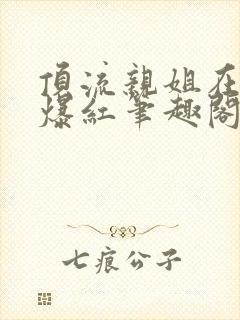 頂流親姐在
爆紅筆趣閣
七痕公子